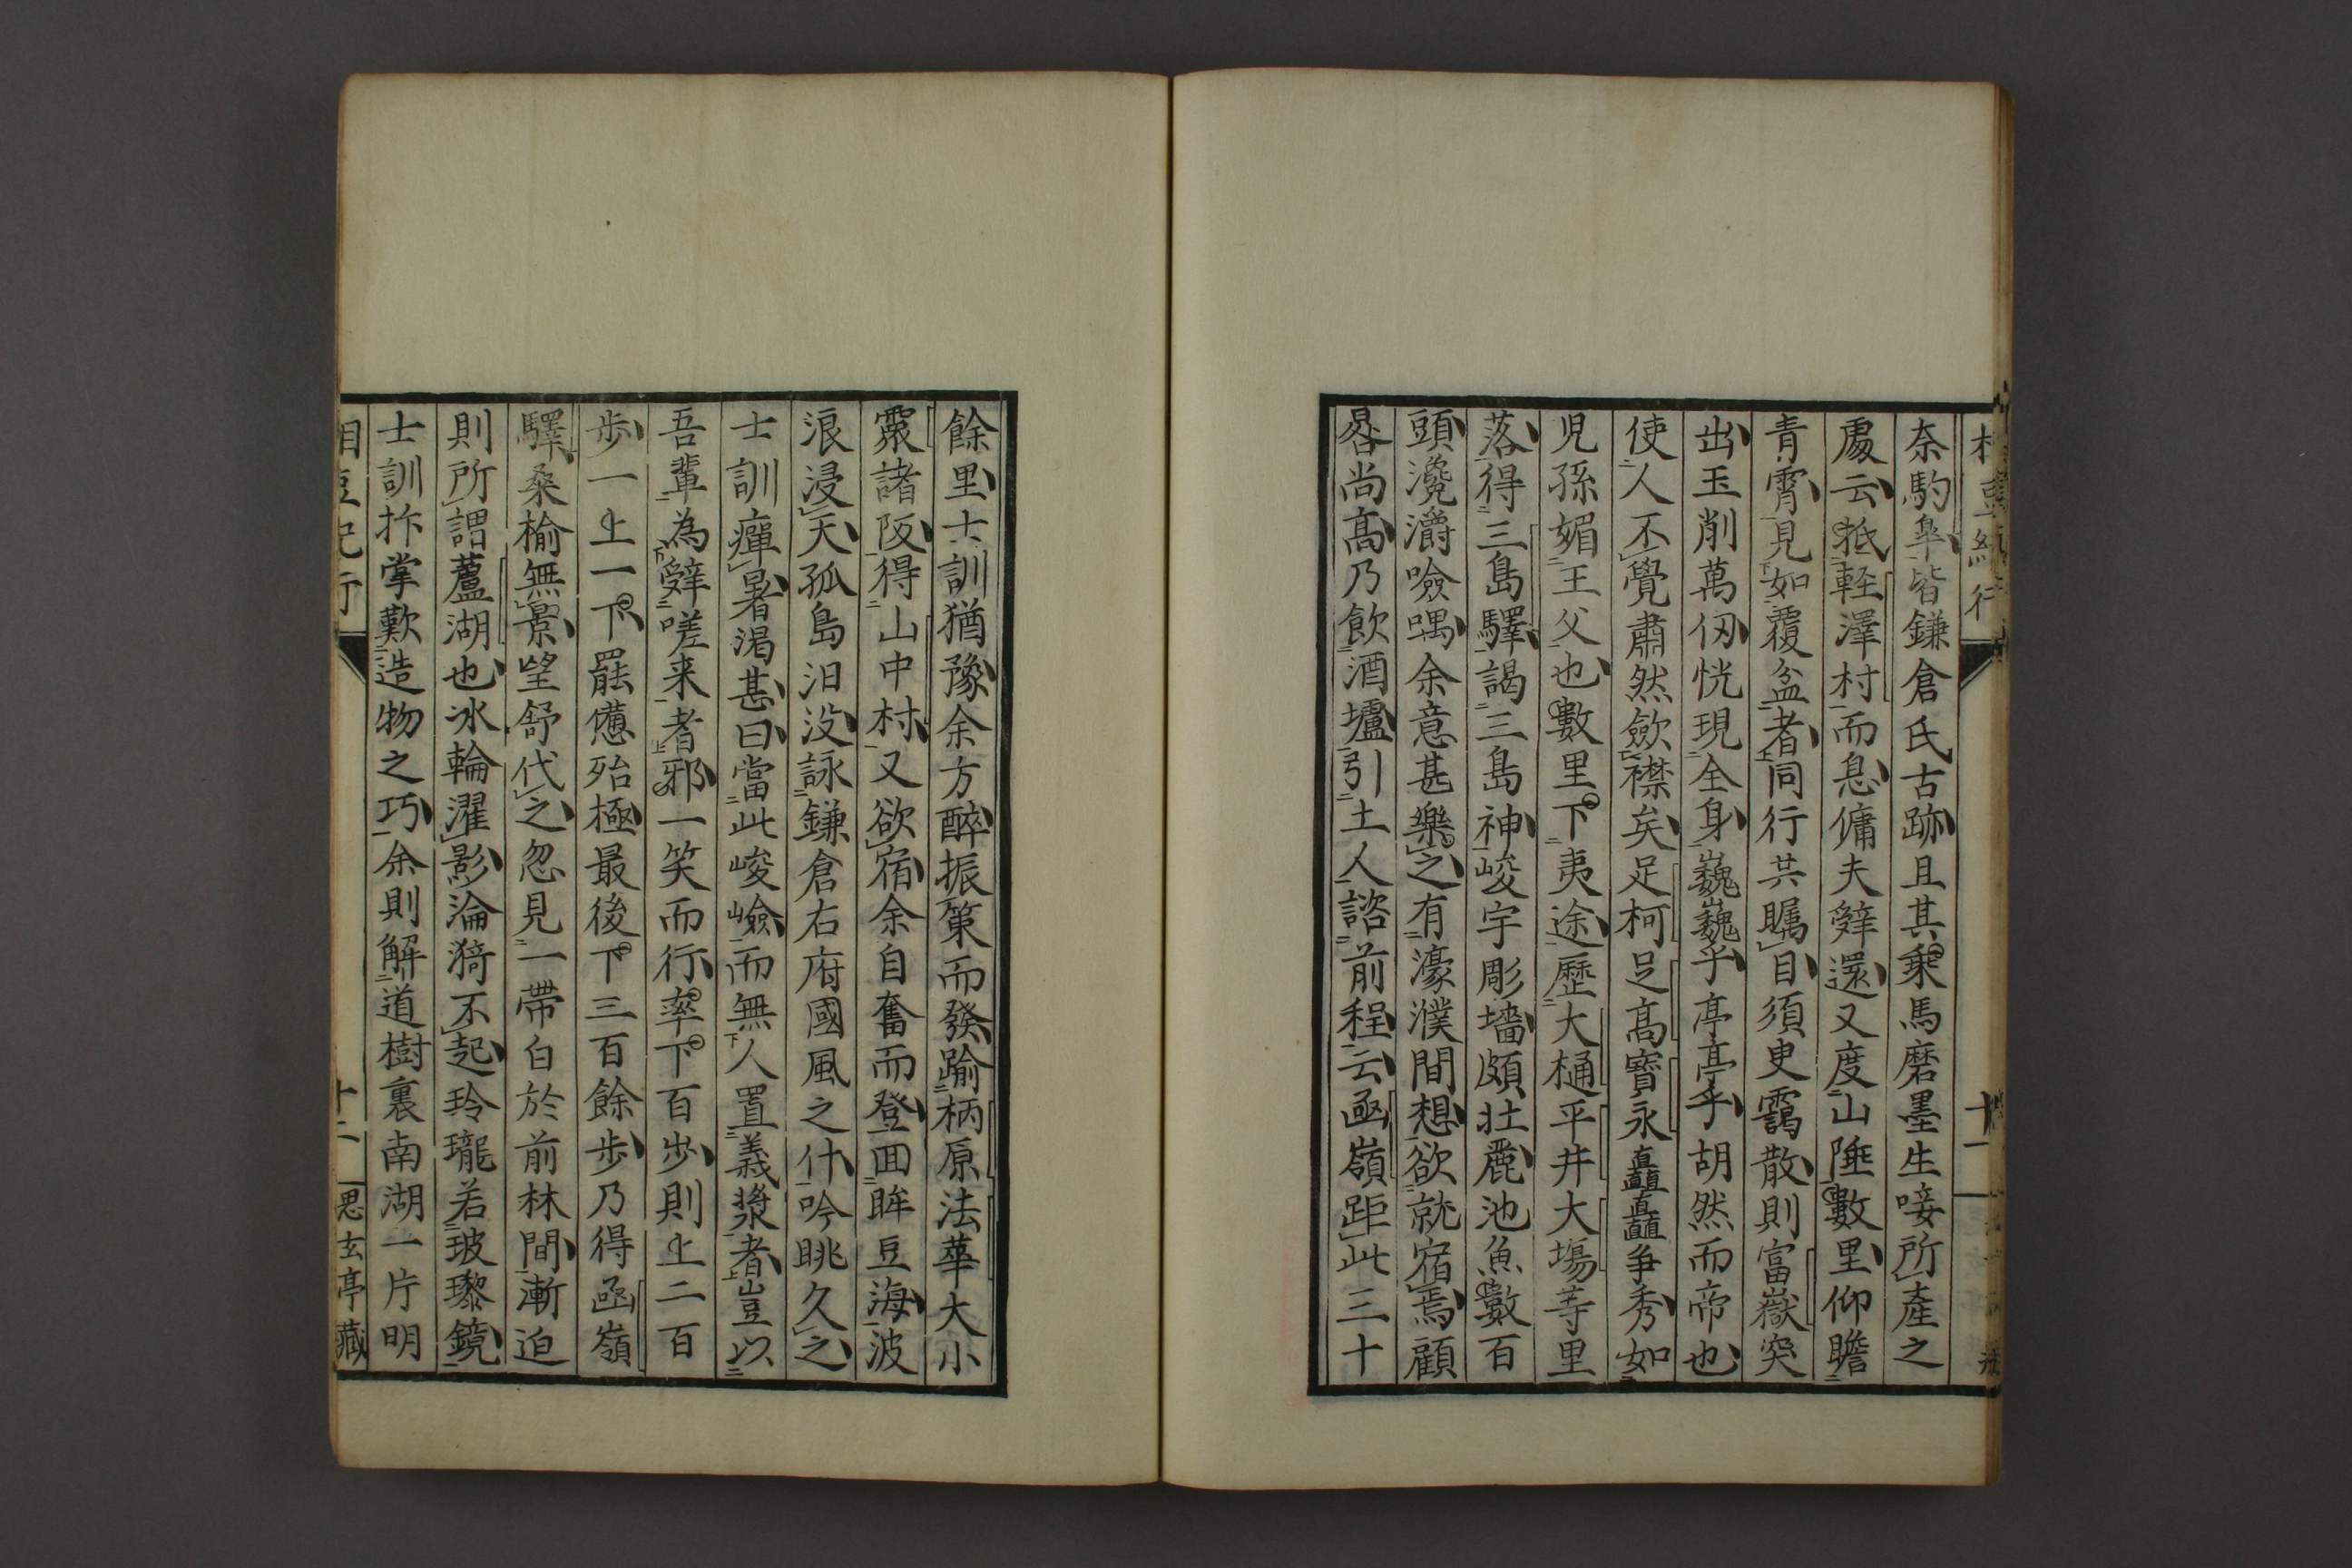 奈駒皐皆鎌倉氏古跡且其乘馬磨墨生唼所產之
處云抵輕澤村而息傭夫辭還又度山陲數里仰瞻
青霄見如覆盆者同行共矚目須臾靄散則富嶽突
出玉削萬仭恍現全身巍巍乎亭亭乎胡然而帝也
使人不覺肅然斂襟矣足柯足高寶永矗矗爭秀如
児孫媚王父也數里下夷途歷大樋平井大場等里
落得三島驛謁三島神峻宇彫墻頗壯麗池魚數百
頭瀺灂噞喁余意甚樂之有濠濮間想欲就宿焉顧
晷尚高乃飲酒壚引土人諮前程云凾嶺距此三十
餘里士訓猶豫余方醉振策而發踰柄原法華大小
霢諸阪得山中村又欲宿余自奮而登回眸豆海波
浪浸天孤島汨没詠鎌倉右府國風之什吟眺久之
士訓癉暑渴甚曰當此峻嶮而無人置義漿者豈以
吾輩為辭嗟来者邪一笑而行率下百步則上二百
步一上一下罷憊殆極最後下三百餘步乃得凾嶺
驛桑榆無景望舒代之忽見一帶白於前林間漸迫
則所謂蘆湖也冰輪濯影淪漪不起玲瓏若玻瓈鏡
士訓抃掌歎造物之巧余則解道樹裏南湖一片明
相豆紀行
十二
思玄亭藏